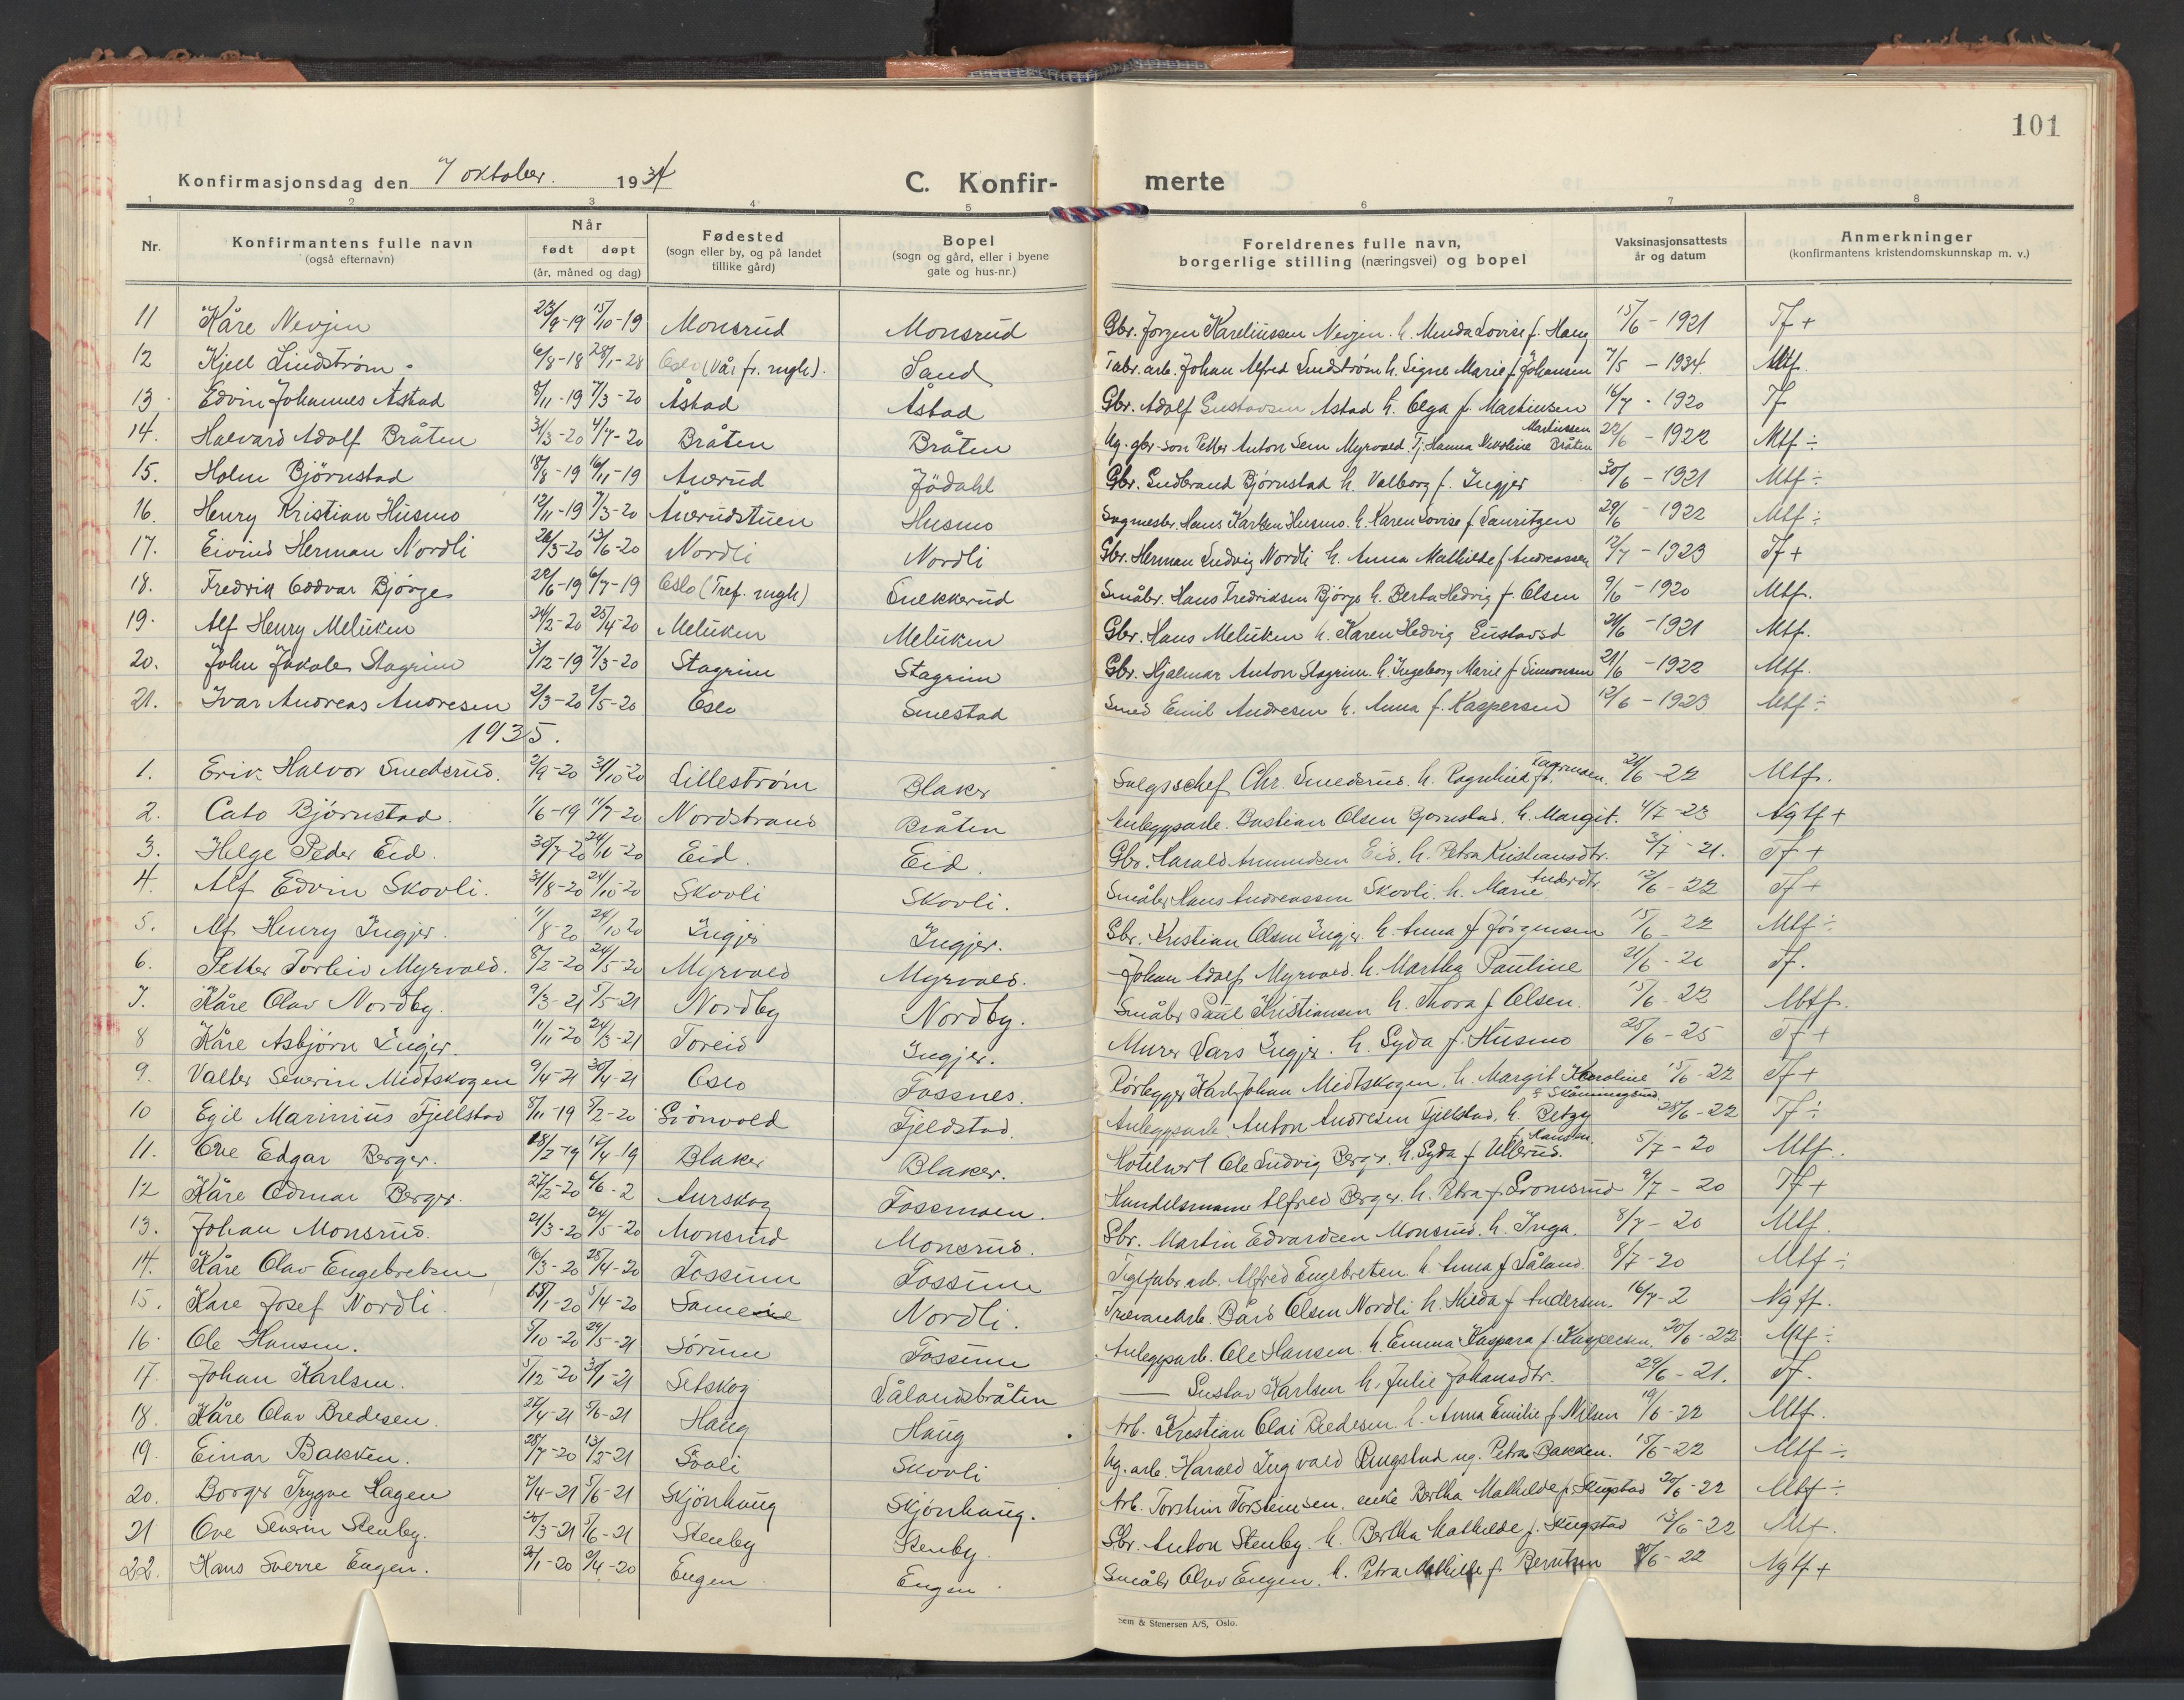 101
Konfirmasjonsdag den 7 oktober. 1934 C. Konfir- merte
1 2 3 4 5 6 7 8
Nr. Konfirmantens fulle navn (også efternavn) Når født døpt (år, måned og dag) Fødested (sogn eller by, og på landet tillike gård) Bopel (sogn og gård, eller i byene gate og hus-nr.) Foreldrenes fulle navn, borgerlige stilling (næringsvei) og bopel Vaksinasjonsattests år og datum Anmerkninger (konfirmantens kristendomskunnskap m. v.)
11 Kåre Nevjen 23/9-19 15/10-19 Monsrud Monsrud Gbr. Jørgen Kareliussen Nevjen. h. Minda Lovise f. Haug 15/6 - 1921 Tf +
12 Kjell Lindstrøm. 6/8-18 28/1-28 Oslo (Vår fr. mgh). Sand Fabr. arb. Johan Alfred Lindstrøm h. Signe Marie f. Johansen 7/5 - 1934. Mtf.
13. Edvin Johannes Åstad 8/11-19 7/3-20 Åstad Åstad Gbr. Adolf Gustavsen Åstad h. Olga f. Martinsen 16/7 - 1920 Tf
14. Halvard Adolf Bråten 31/3-20 4/7-20 Bråten Bråten Ug. gbr. søn Petter Anton Sem Myrvold. Tj. Hanna Nikoline Martinsen Bråten 22/6 - 1922 Mtf ÷
15. Holm Björnstad 18/8-19 16/11-19 Anerud Jödahl Gbr. Gudbrand Björnstad h. Valborg f. Ingjer 30/6 - 1921 Mtf ÷
16. Henry Kristian Husmo 12/11-19 7/3-20 Ånerudstuen Husmo Sagmestr. Hans Karlsen Husmo. h. Karen Lovise f. Lauritzen 29/6 - 1922 Mtf ÷
17. Eivind Herman Nordli 26/3-20 13/6-20 Nordli Nordli Gbr. Herman Ludvig Nordli h. Anna Mathilde f. Andreassen 12/7 - 1923 Tf +
18. Fredrik Oddvar Bjørge 22/6-19 6/7-19 Oslo (Tref. mgh) Snekkerud Småbr. Hans Fredriksen Björge h. Berta Hedvig f. Olsen 9/6 - 1920 Mtf.
19. Alf Henry Meluken 24/2-20 25/4-20 Meluken Meluken Gbr. Hans Meluken h. Karen Hedvig Gustavsd 24/6 - 1921 Mtf.
20. John Jakales Stagrim 3/12-19 7/3-20 Stagrim Stagrim Gbr. Hjalmar Anton Stagrim. h. Ingeborg Marie f. Simonsen 21/6 - 1922 Mtf.
21. Ivar Andreas Andresen 2/3-20 2/5-20 Oslo Smestad Smed Emil Andresen h. Anna f. Kaspersen 12/6 - 1923 Mtf ÷
1935.
1. Erik Halvor Smedsrud. 2/9-20 31/10-20 Lilleström Blaker Salgsschef Chr. Smedsrud. h. Ragnhild f. 21/6 - 22 Mtf.
2. Cato Björnstad. 1/6-19 11/7-20 Nordstrand Bråten Anleggsarb. Bastian Olsen Bjørnstad. h. Margit. 4/7 - 23 Ng tf +
3. Helge Peder Eid. 30/7-20 24/10-20 Eid. Eid. Gbr. Harald Amundsen Eid. h. Petra Kristiansdtr. 3/7 - 21. Tf +
4. Alf Edvin Skovli. 31/8-20 24/10-20 Skovli Skovli. Småbr. Hans Andreassen Skovli. h. Marie Andersdtr. 12/6 - 22 Tf +
5. Alf Henry Ingjer. 11/8-20 24/10 20 Ingjer Ingjer. Gbr. Kristian Olsen Ingjer. h. Anna f. Jörgensen 15/6 - 22 Mtf ÷
6. Petter Torleiv Myrvold. 8/2-20 24/5-20 Myrvold Myrvold. Johan Adolf Myrvold. h. Martha Pauline 21/6 - 21 Tf.
7. Kåre Olav Nordby. 9/3-21 5/5-21 Nordby Nordby. Småbr. Paul Kristiansen h. Thora f. Olsen. 15/6 - 22 Mtf.
8 Kåre Asbjørn Ingjer. 11/11-20 24/3-21 Toreid Ingjer. Murer Lars Ingjer. h. Gyda f. Husmo 25/6 - 25 Tf +
9. Valter Severin Midtskogen 9/4-21 30/4-21 Oslo Fossnes. Rørlegger Karl Johan Midtskogen. h. Margit Karoline 15/6 - 22 Tf +
10 Egil Marinius Fjellstad 8/11-19 8/2-20 Grönvold Fjeldstad. Anleggsarb. Anton Andresen Fjellstad. h. Petzy 28/6 - 22 Tf ÷
11. Ove Edgar Berger. 18/2-19 17/4-19 Blaker Blaker. Hotelvert Ole Ludvig Berger. h. Gyda f. Ullerud. 5/7 - 20 Mtf.
12 Kåre Odmar Berger. 27/2-20 6/6-2 Aurskog Fossmoen. Handelsmann Alfred Berger. h. Petra f. Gromsrud 9/7 - 20 Tf +
13. Johan Monsrud. 21/3-20 24/5-20 Monsrud Monsrud. Gbr. Martin Edvardsen Monsrud. h. Inga. 8/7 - 20 Mtf.
14. Kåre Olav Engebretsen 16/3-20 25/4-20 Fossum Fossum Teglfabr. arb. Alfred Engebretsen. h. Anna f. Såland. 8/7 - 20 Mtf ÷
15. Kåre Josef Nordli. 18/1-20 5/4-20 Samme Nordli. Trevarearb. Bård Olsen Nordli h. Hilda f. Andersen. 16/7 - 2 Ng tf.
16. Ole Hansen. 5/10-20 29/5-21 Sörum Fossum Anleggsarb. Ole Hansen. h. Emma Kaspara f. Kaspersen. 20/6 - 22 Mtf ÷
17. Johan Karlsen. 5/12-20 30/1-21 Setskog Sålandsbråten — Gustav Karlsen h. Julie Johansdtr. 29/6 - 21. Tf.
18. Kåre Olav Bredesen. 27/4-21 5/6-21 Haug Haug Arb. Kristian Olai Bredesen. h. Anna Emilie f. Nilsen 19/6 - 22 Mtf.
19. Einar Bakken. 28/7-20 13/3-21 Skovli Ug. arb. Harald Ingvald Ringstad ug. Petra Bakken. 15/6 - 22 Mtf ÷
20. Borger Trygve Hagen 7/4-21 5/6-21 Skjönhaug Skjönhaug. Arb. Torstein Torsteinsen. enke Bertha Mathilde f. Skugstad 20/6 - 22 Mtf ÷
21 Ove Severin Stenby. 20/3-21 5/6-21 Stenby Stenby. Gbr. Anton Stenby. h. Bertha Mathilde f. Skugstad 13/6 - 22 Mtf.
22. Hans Sverre Engen. 2/1-20 9/4-20 Engen Engen. Småbr Olav Engen. h. Petra Mathilde f. Berntsen 20/6 - 22 Ng tf +
Sem & Stenersen A/S, Oslo.